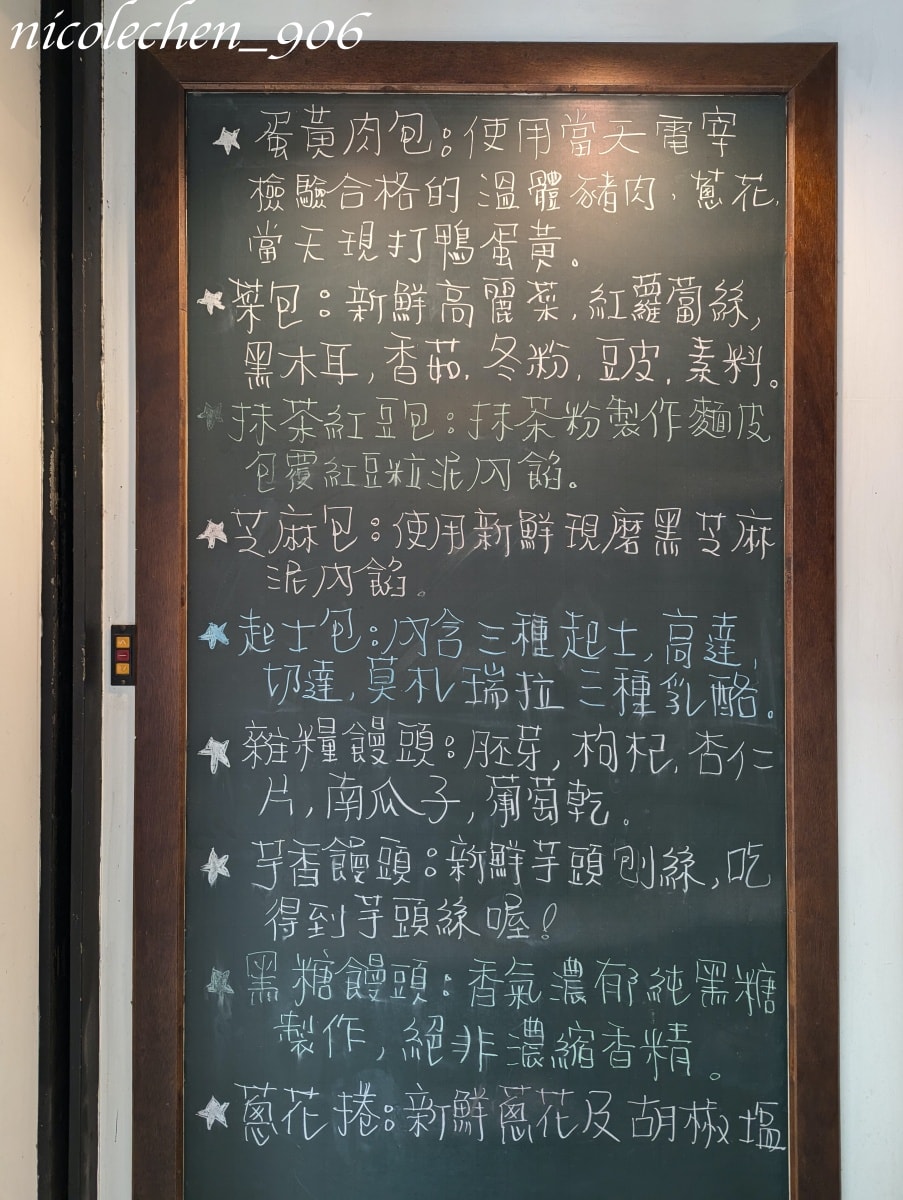 nicolechen_906
★ 蛋黃肉包:使用當天電宰
檢驗合格的溫體豬肉、蔥花,
當天現打鴨蛋黃。
★ 菜包:新鮮高麗菜,紅蘿蔔絲,
黑木耳,香菇,冬粉,豆皮,素料。
★ 抹茶紅豆包:抹茶粉製作麵皮
包覆紅豆粒泥內餡。
★ 芝麻包:使用新鮮現磨黑芝麻
泥內餡。
★ 起士包:內含三種起士,高達,
切達,莫札瑞拉三種乳酪。
★ 雜糧饅頭:胚芽,枸杞,杏仁
片,南瓜子,葡萄乾。
★ 芋香饅頭:新鮮芋頭刨絲,吃
得到芋頭絲喔!
★ 黑糖饅頭:香氣濃郁純黑糖
製作,絕非濃縮香精。
★ 蔥花捲:新鮮蔥花及胡椒塩